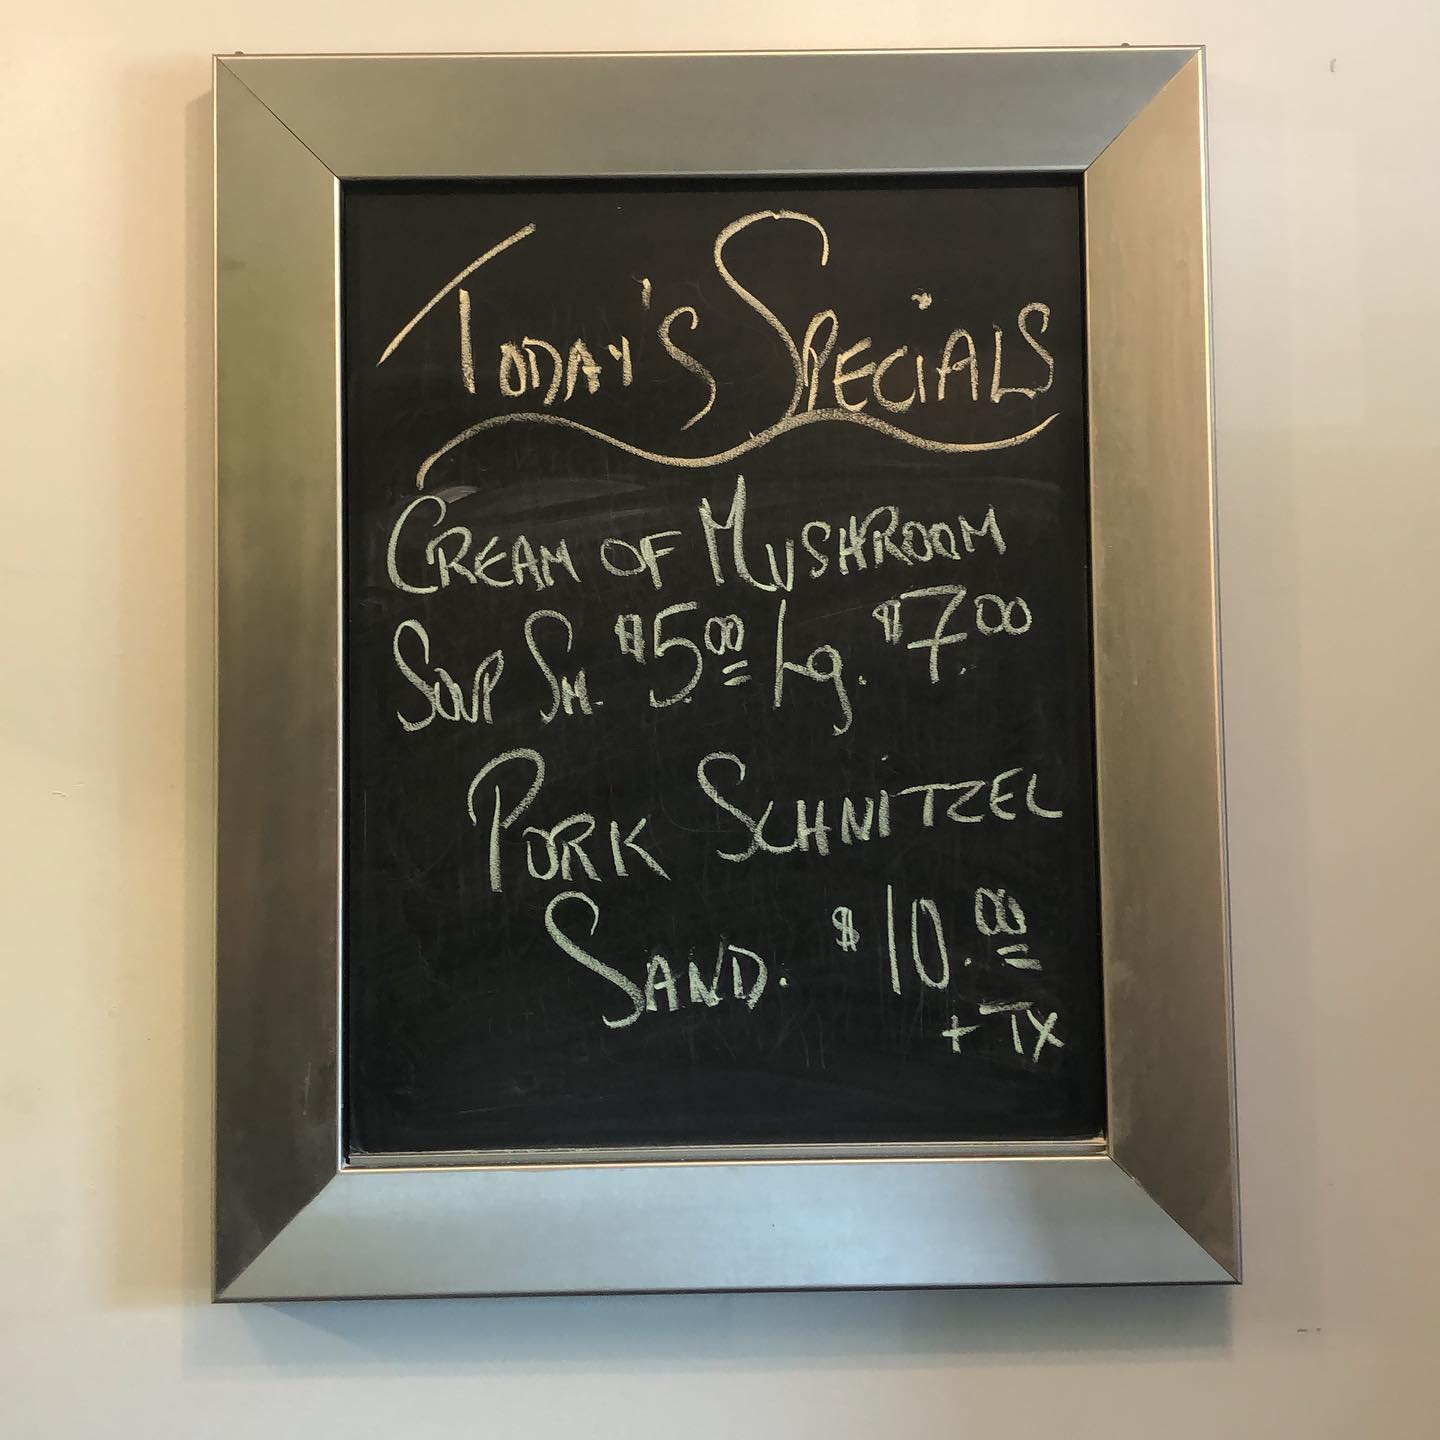 TODAY'S SPECIALS
CREAM OF MUSHROOM
SOUP SM. $5.00 Lg. $7.00
PORK SCHNITZEL
SAND. $10.00
+ TX